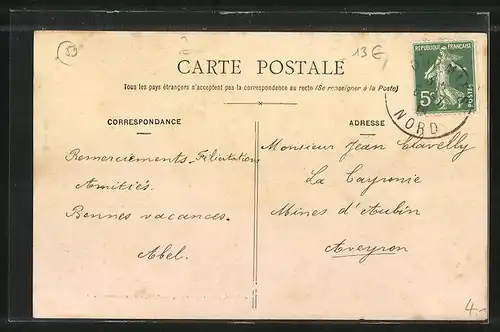 53
13€
CARTE POSTALE
Tous les pays étrangers n'acceptent pas la correspondance au recto (Se renseigner à la Poste)
CORRESPONDANCE
Remerciements - Félicitations
Amitiés.
Bonnes vacances.
Abel.
ADRESSE
Monsieur Jean Clavelly
La Cayronie
Mines d'Aubin
Aveyron
REPUBLIQUE FRANÇAISE
5c
POSTES
NORD
4-